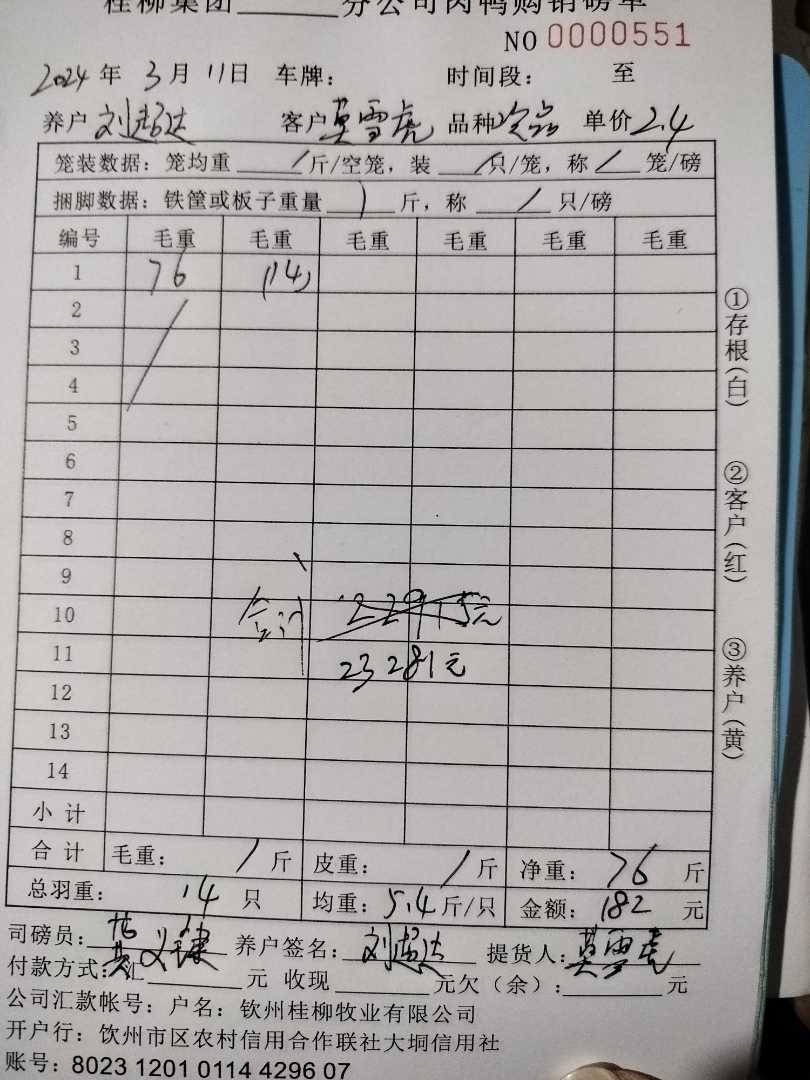 桂柳集团______分公司肉鸭购销磅单
NO 0000551
2024年 3月 11日 车牌: 时间段: 至
养户 刘超达 客户 莫雪虎 品种 单价 2.4
笼装数据: 笼均重 / 斤/空笼, 装 / 只/笼, 称 / 笼/磅
捆脚数据: 铁筐或板子重量 / 斤, 称 / 只/磅
编号 毛重 毛重 毛重 毛重 毛重 毛重
1 76 (14)
2
3
4
5
6
7
8
9
10 合计 元
11 23281元
12
13
14
小计
合计 毛重: / 斤 皮重: / 斤 净重: 76 斤
总羽重: 14 只 均重: 5.4 斤/只 金额: 182 元
司磅员: 养户签名: 刘超达 提货人: 莫雪虎
付款方式: 汇______元 收现______元欠(余):______元
公司汇款帐号: 户名: 钦州桂柳牧业有限公司
开户行: 钦州市区农村信用合作联社大垌信用社
账号: 8023 1201 0114 4296 07
①存根(白)
②客户(红)
③养户(黄)